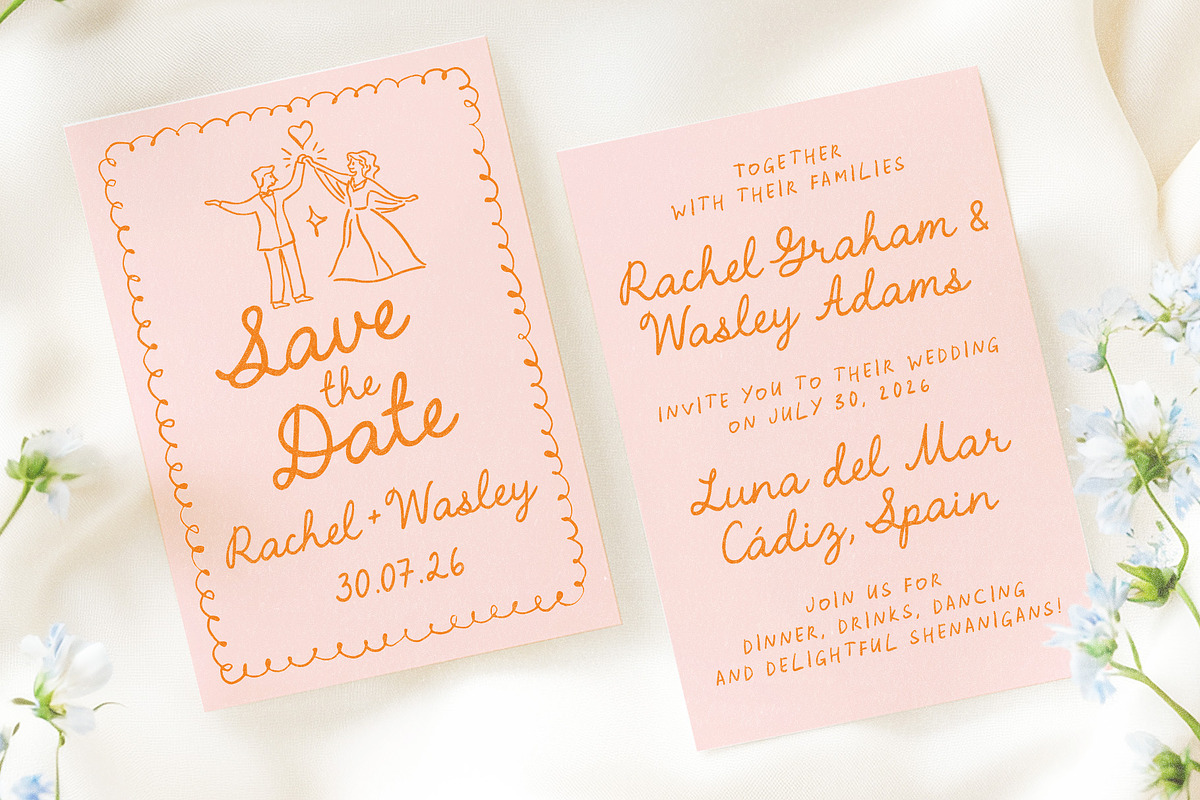 Save
the
Date
Rachel + Wasley
30.07.26
TOGETHER
WITH THEIR FAMILIES
Rachel Graham &
Wasley Adams
INVITE YOU TO THEIR WEDDING
ON JULY 30, 2026
Luna del Mar
Cádiz, Spain
JOIN US FOR
DINNER, DRINKS, DANCING
AND DELIGHTFUL SHENANIGANS!